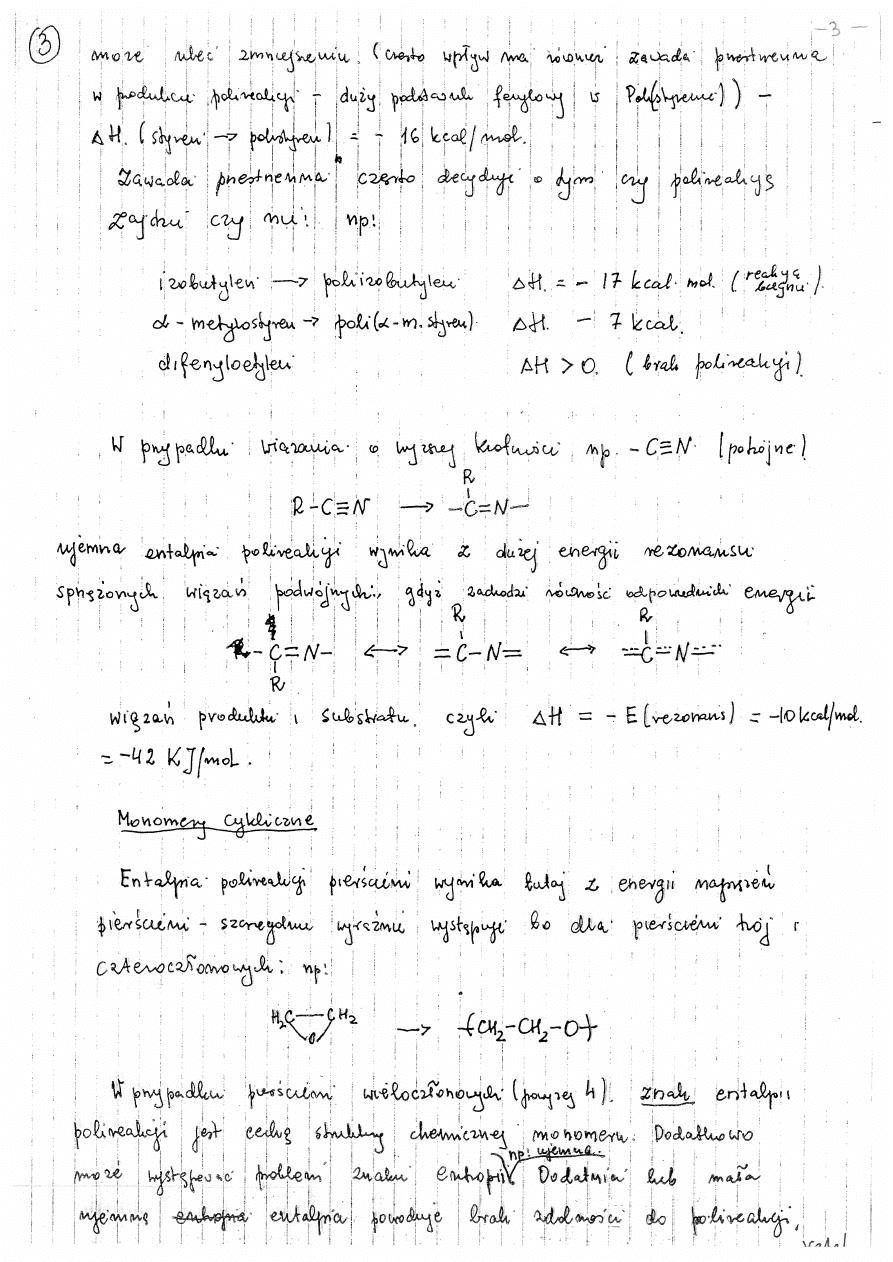 ③ - 3 -
może ulec zmniejszeniu. (często wpływ ma również zawada przestrzenna
w produkcie polireakcji - duży podstawnik fenylowy w Poli(styrenie)) -
ΔH. (styren → polistyren) = - 16 kcal/mol.
Zawada przestrzenna często decyduje o tym czy polireakcja
zajdzie czy nie! np:
izobutylen → poliizobutylen ΔH. = - 17 kcal. mol. (reakcja biegnie).
α - metylostyren → poli(α-m.styren) ΔH. - 7 kcal.
difenyloetylen ΔH > 0. (brak polireakcji)
W przypadku wiązania o wyższej krotności np. -C≡N (potrójne)
R
R-C≡N → -C=N-
ujemna entalpia polireakcji wynika z dużej energii rezonansu
sprzężonych wiązań podwójnych, gdyż zachodzi równość odpowiednich energii
R R
- C=N- ↔ =C-N= ↔ =C=N=
R
wiązań produktu i substratu. czyli ΔH = - E(rezonans) = -10kcal/mol.
= -42 KJ/mol.
Monomery cykliczne
Entalpia polireakcji pierścieni wynika tutaj z energii naprężeń
pierścieni - szczególnie wyraźnie występuje to dla pierścieni trój i
czteroczłonowych: np:
H₂C—CH₂ → -(CH₂-CH₂-O)-
O
W przypadku pierścieni wieloczłonowych (powyżej 4). znak entalpii
polireakcji jest cechą struktury chemicznej monomeru. Dodatkowo
np: ujemna..
może występować problem znaku entropii. Dodatnia lub mała
ujemna entropia entalpia powoduje brak zdolności do polireakcji,